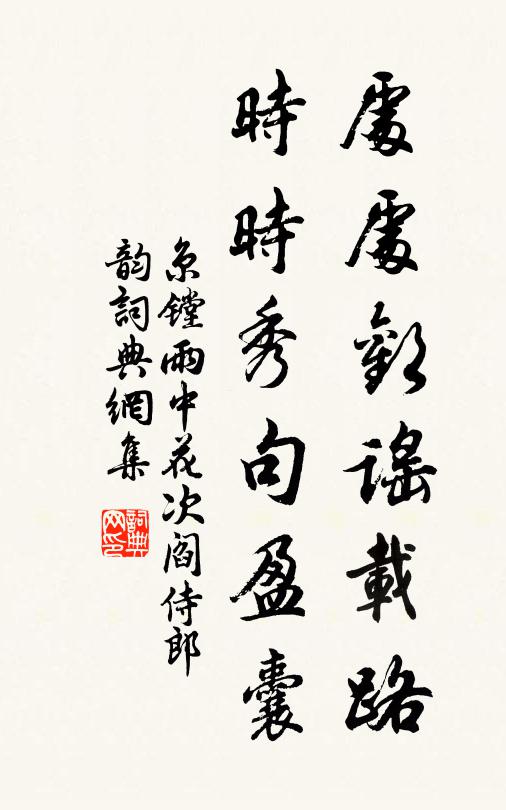 處處歡謠載路
時時秀句盈囊
京鏜雨中花次閻侍郎
韵詞典網集
詞典
网印